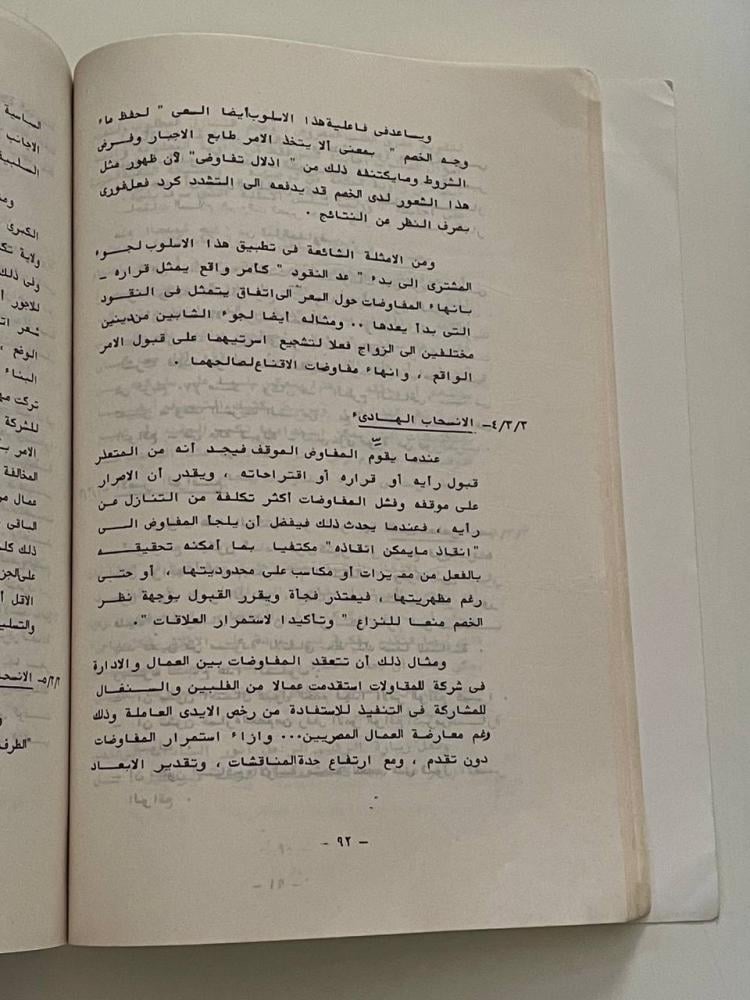 ويساعد فى فاعلية هذا الاسلوب أيضا السعى " لحفظ ماء
وجه الخصم " بمعنى ألا يتخذ الامر طابع الاجبار وفرض
الشروط ومايكتنفه ذلك من " اذلال تفاوضى" لأن ظهور مثل
هذا الشعور لدى الخصم قد يدفعه الى التشدد كرد فعل فورى
بصرف النظر عن النتائج .
ومن الامثلة الشائعة فى تطبيق هذا الاسلوب لجوء
المشترى الى بدء " عد النقود " كأمر واقع يمثل قراره -
بانهاء المفاوضات حول السعر الى اتفاق يتمثل فى النقود
التى بدأ يعدها .. ومثاله أيضا لجوء الشابين من دينين
مختلفين الى الزواج فعلا لتشجيع اسرتيهما على قبول الامر
الواقع ، وانهاء مفاوضات الاقناع لصالحهما .
٤/٣/٢- الانسحاب الهادىء
عندما يقوّم المفاوض الموقف فيجد أنه من المتعذر
قبول رأيه أو قراره أو اقتراحاته ، ويقدر أن الاصرار
على موقفه وفشل المفاوضات أكثر تكلفة من التنازل عن
رأيه ، فعندما يحدث ذلك فيفضل أن يلجأ المفاوض الى
"انقاذ مايمكن انقاذه" مكتفيا بما أمكنه تحقيقه
بالفعل من مميزات أو مكاسب على محدوديتها ، أو حتى
رغم مظهريتها ، فيعتذر فجأة ويقرر القبول بوجهة نظر
الخصم منعا للنزاع " وتأكيدا لاستمرار العلاقات ".
ومثال ذلك أن تتعقد المفاوضات بين العمال والادارة
فى شركة للمقاولات استقدمت عمالا من الفلبين والسنغال
للمشاركة فى التنفيذ للإستفادة من رخص الايدى العاملة وذلك
رغم معارضة العمال المصريين... وازاء استمرار المفاوضات
دون تقدم ، ومع ارتفاع حدة المناقشات ، وتقدير الابعاد
- ٩٢ -